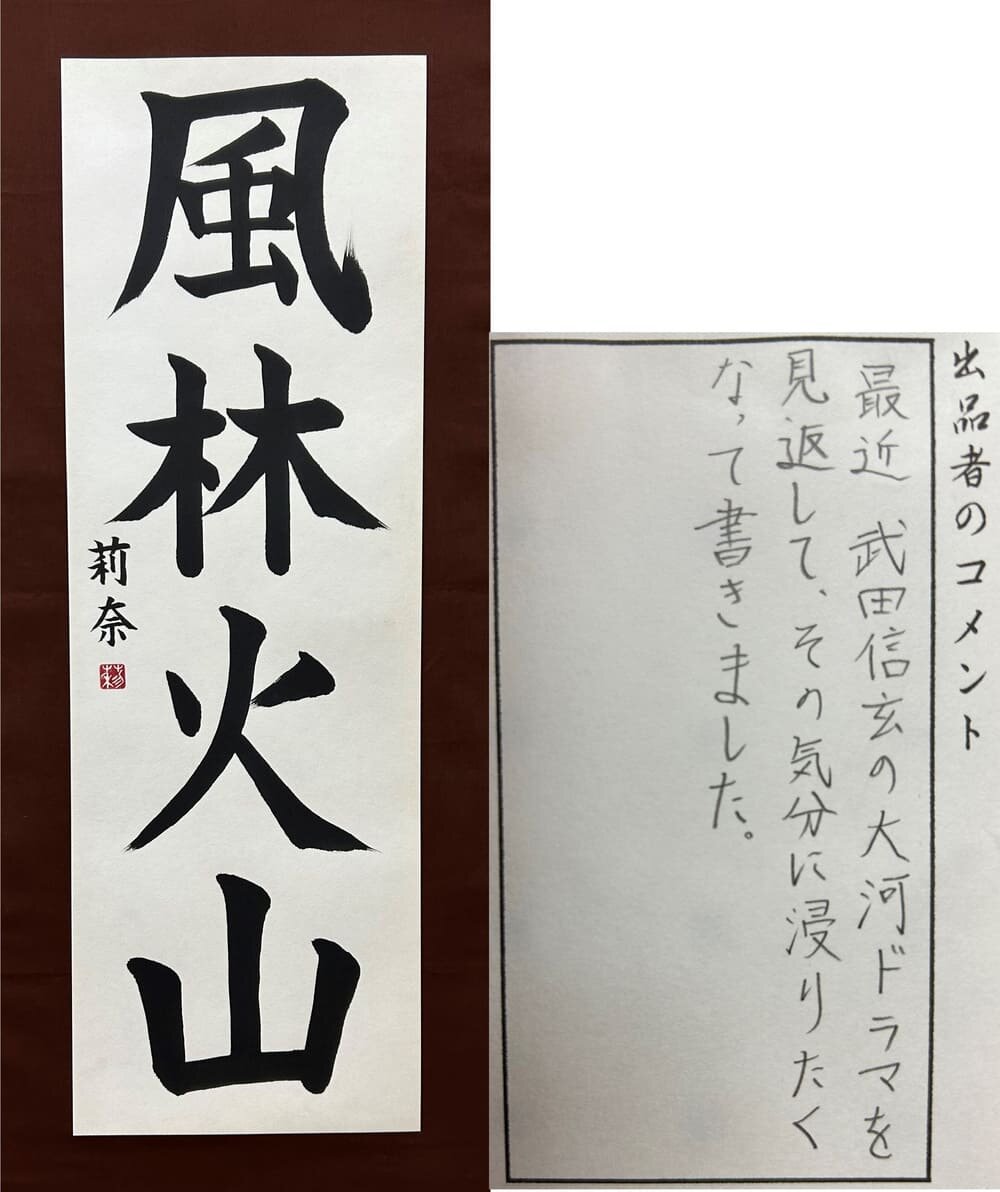 風林火山
莉奈
出品者のコメント
最近 武田信玄の大河ドラマを
見返して、その気分に浸りたく
なって書きました。